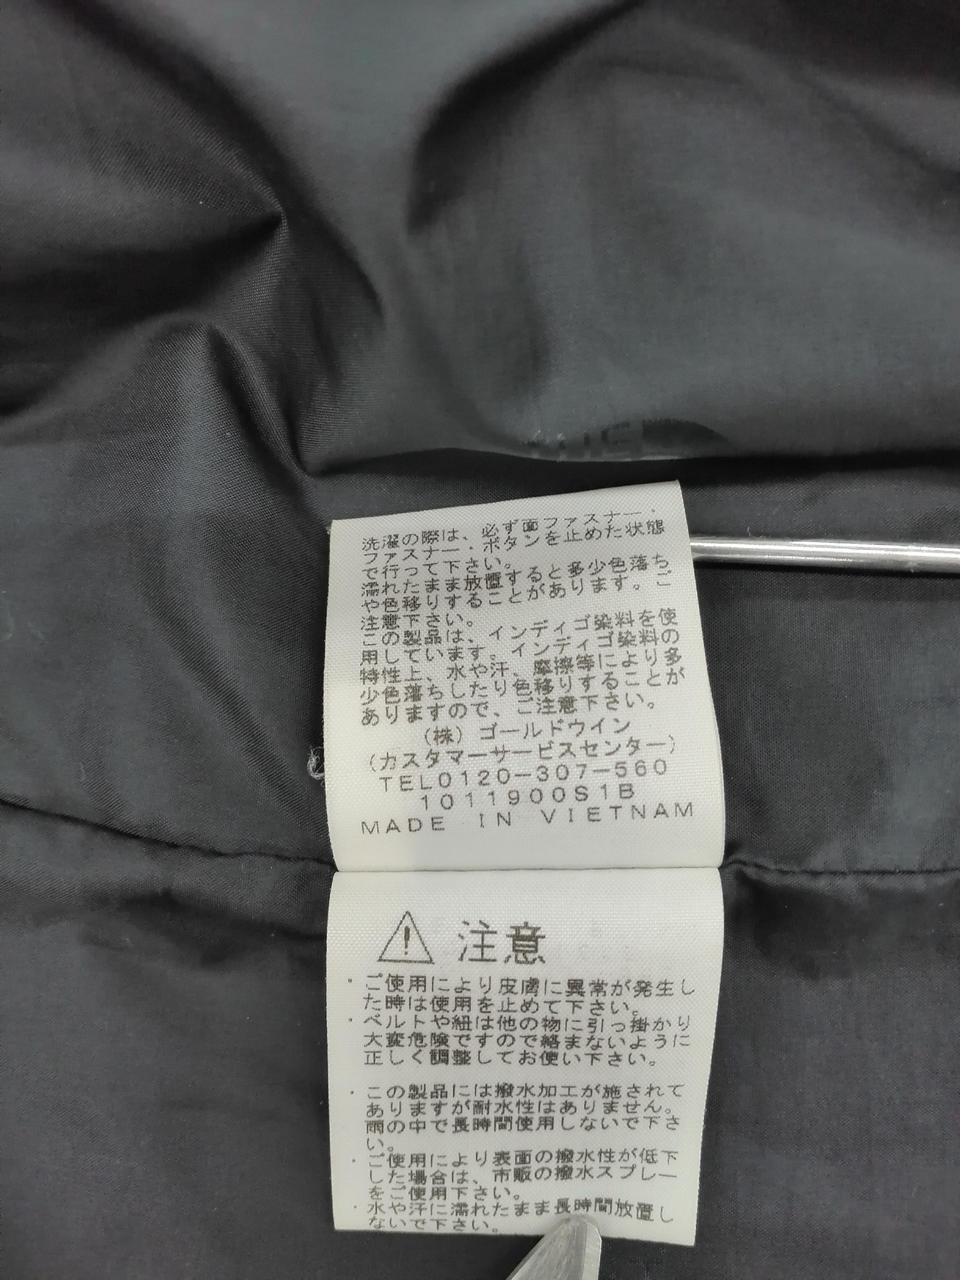 洗濯の際は、必ず面ファスナー・
ファスナー・ボタンを止めた状態
で行って下さい。
濡れたまま放置すると多少色落ち
や色移りすることがあります。ご
注意下さい。
この製品は、インディゴ染料を使
用しています。インディゴ染料の
特性上、水や汗、摩擦等により多
少色落ちしたり色移りすることが
ありますので、ご注意下さい。
(株)ゴールドウイン
(カスタマーサービスセンター)
TEL0120-307-560
1011900S1B
MADE IN VIETNAM
注意
・ご使用により皮膚に異常が発生し
た時は使用を止めて下さい。
・ベルトや紐は他の物に引っ掛かり
大変危険ですので絡まないように
正しく調整してお使い下さい。
・この製品には撥水加工が施されて
ありますが耐水性はありません。
雨の中で長時間使用しないで下さ
い。
・ご使用により表面の撥水性が低下
した場合は、市販の撥水スプレー
をご使用下さい。
・水や汗に濡れたまま長時間放置し
ないで下さい。